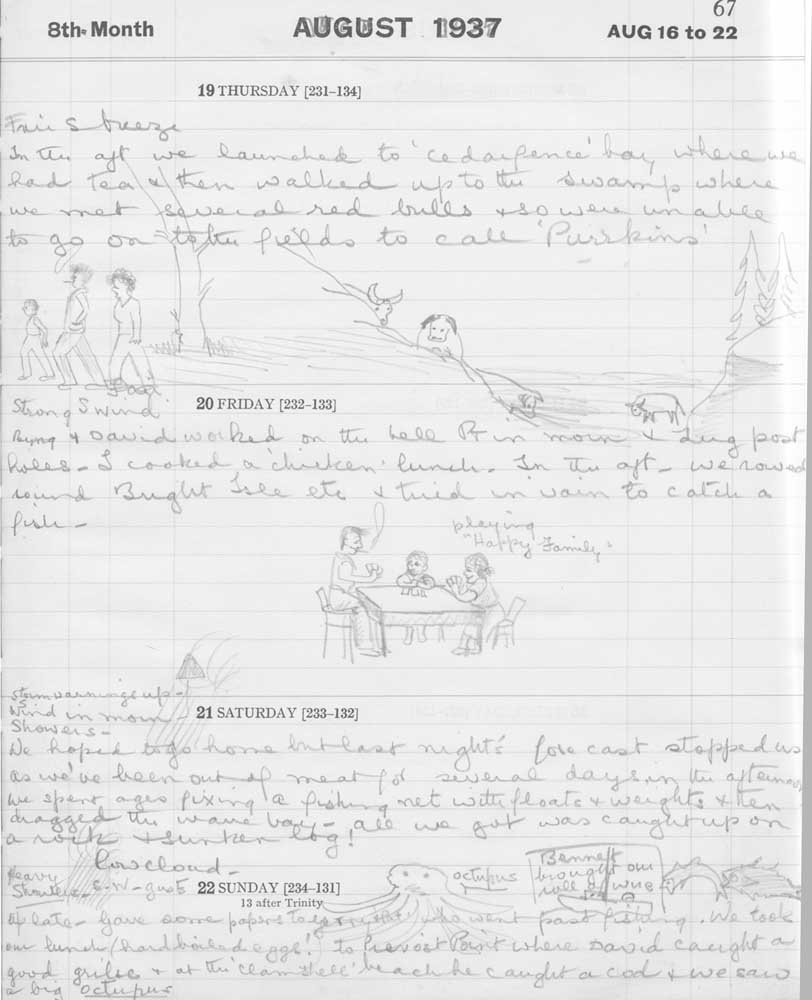 67
8th Month AUGUST 1937 AUG 16 to 22
19 THURSDAY [231-134]
Fair S breeze
In the aft we launched to 'cedarfence' bay where we
had tea & then walked up to the swamp where
we met several red bulls & so were unable
to go on to the fields to call 'Purrkins'
20 FRIDAY [232-133]
Strong S wind
& David worked on the in morn & dug post
holes - I cooked a 'chicken' lunch. In the aft - we rowed
round Bright Isle etc & tried in vain to catch a
fish -
playing
"Happy Family"
Storm warnings up -
S Wind in morn
Showers -
21 SATURDAY [233-132]
We hoped to go home but last night's forecast stopped us
as we've been out of meat for several days, in the afternoon
we spent ages fixing a fishing net with floats & weights & then
dragged the bay - all we got was caught up on
a rock & sunken log!
Low cloud -
Heavy
Showers. S-W- gusts
22 SUNDAY [234-131]
13 after Trinity
octupus
Bennett
brought our
roll of wire
Up late - Gave some papers to who went past fishing. We took
our lunch (hard boiled eggs!) to Prevost Point where David caught a
good grilse & at the 'clam shell' beach he caught a cod & we saw
a big octupus